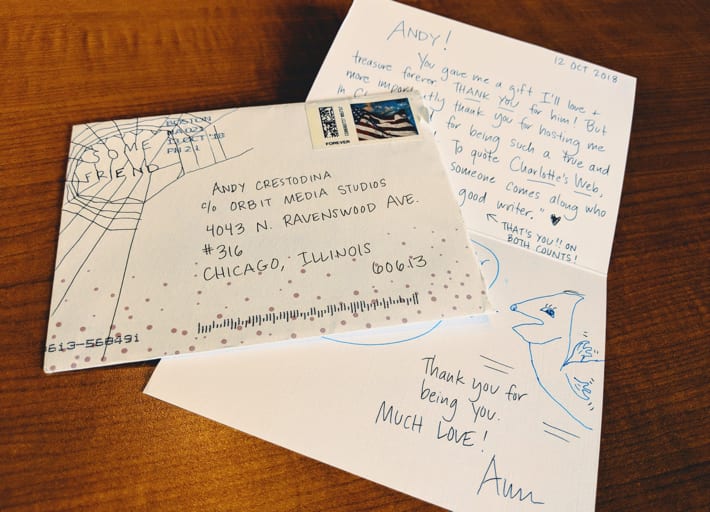 SOME
FRIEND
BOSTON
MA 021
OCT '18
FOREVER
ANDY CRESTODINA
c/o ORBIT MEDIA STUDIOS
4043 N. RAVENSWOOD AVE.
#316
CHICAGO, ILLINOIS 60613
613-568491
ANDY!
12 OCT 2018
You gave me a gift I'll love +
treasure forever. THANK YOU for him! But
more importantly thank you for hosting me
in
for being such a true and
! To quote Charlotte's Web,
someone comes along who
good writer." ♥
← THAT'S YOU!! ON
BOTH COUNTS!
Thank you for
being you.
MUCH LOVE!
Ann